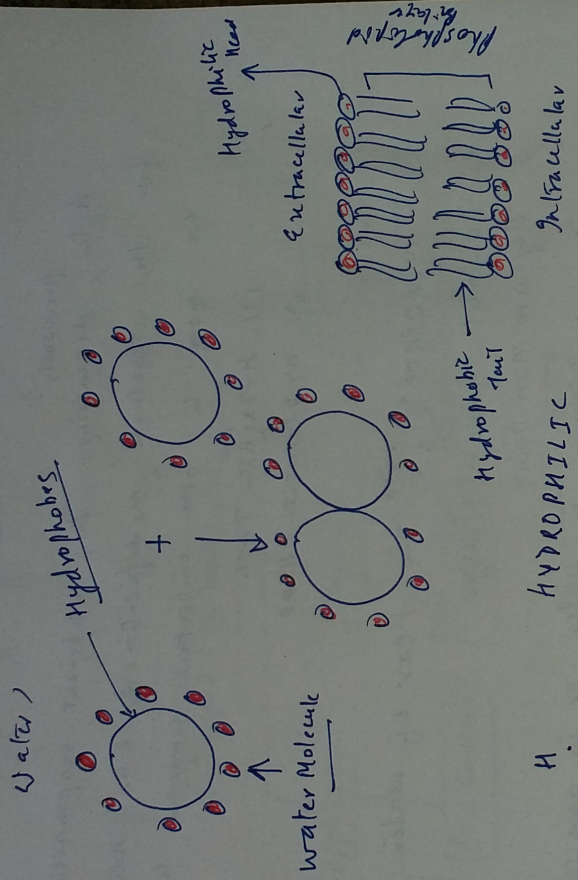 Water)
Hydrophobes
+
Water Molecule
Hydrophilic
Head
Extracellular
Phospholipid
Bilayer
Hydrophobic
Tail
Intracellular
H. HYDROPHILIC